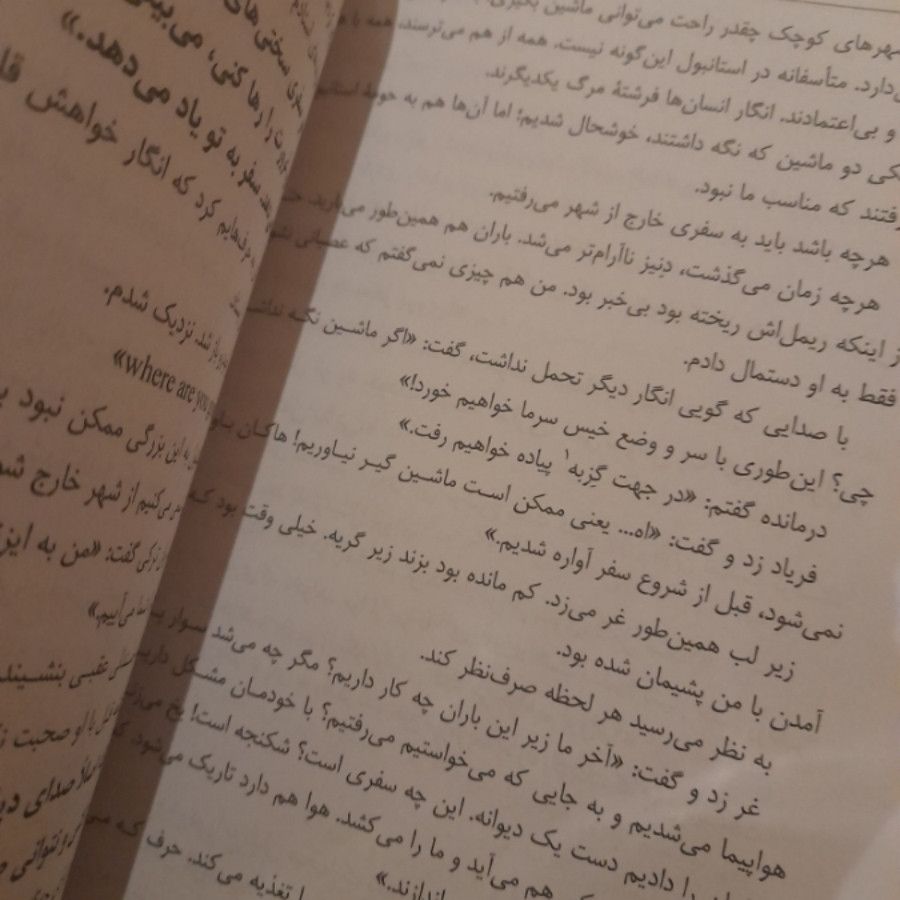 شهرهای کوچک چقدر راحت می‌توانی ماشین بگیری
دارد. متأسفانه در استانبول این‌گونه نیست. همه از هم می‌ترسند. همه با
و بی‌اعتمادند. انگار انسان‌ها فرشتهٔ مرگ یکدیگرند.
یکی دو ماشین که نگه داشتند، خوشحال شدیم؛ اما آن‌ها هم به حومهٔ
رفتند که مناسب ما نبود.
هرچه باشد باید به سفری خارج از شهر می‌رفتیم.
هرچه زمان می‌گذشت، دنیز ناآرام‌تر می‌شد. باران هم همین‌طور می‌بارید.
از اینکه ریمل‌اش ریخته بود بی‌خبر بود. من هم چیزی نمی‌گفتم که عصبانی
فقط به او دستمال دادم.
با صدایی که گویی انگار دیگر تحمل نداشت، گفت: «اگر ماشین نگه نداشت
چی؟ این‌طوری با سر و وضع خیس سرما خواهیم خورد!»
درمانده گفتم: «در جهت گزبه۱ پیاده خواهیم رفت.»
فریاد زد و گفت: «اه... یعنی ممکن است ماشین گیر نیاوریم! هاکان
نمی‌شود، قبل از شروع سفر آواره شدیم.»
زیر لب همین‌طور غر می‌زد. کم مانده بود بزند زیر گریه. خیلی وقت بود که
آمدن با من پشیمان شده بود.
به نظر می‌رسید هر لحظه صرف‌نظر کند.
غر زد و گفت: «آخر ما زیر این باران چه کار داریم؟ مگر چه می‌شد سوار
هواپیما می‌شدیم و به جایی که می‌خواستیم می‌رفتیم؟ با خودمان مشکل داریم
را دادیم دست یک دیوانه. این چه سفری است؟ شکنجه است! یخ می‌زنیم
هم می‌آید و ما را می‌کشد. هوا هم دارد تاریک می‌شود
اندازند.»
را تغذیه می‌کند. حرف
سختی‌های
را رها کنی، می‌بینی
سفر به تو یاد می‌دهد.»
کرد که انگار خواهش
شد. نزدیک شدم.
«where are you
به این بزرگی ممکن نبود
می‌کنیم از شهر خارج
ترکی گفت: «من به
می‌آییم.»
عقبی بنشینند
با او صحبت
صدای
و نتوانی